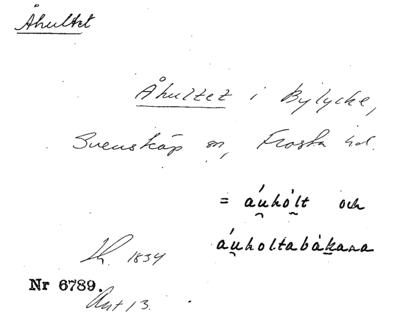 Åhultet
Åhultet i Bylycke,
Svensköp sn, Frosta hd.
= áu̯hòlt och
áu̯holtabàkana
Th. 1834
Nr 6789.
Ant 13.